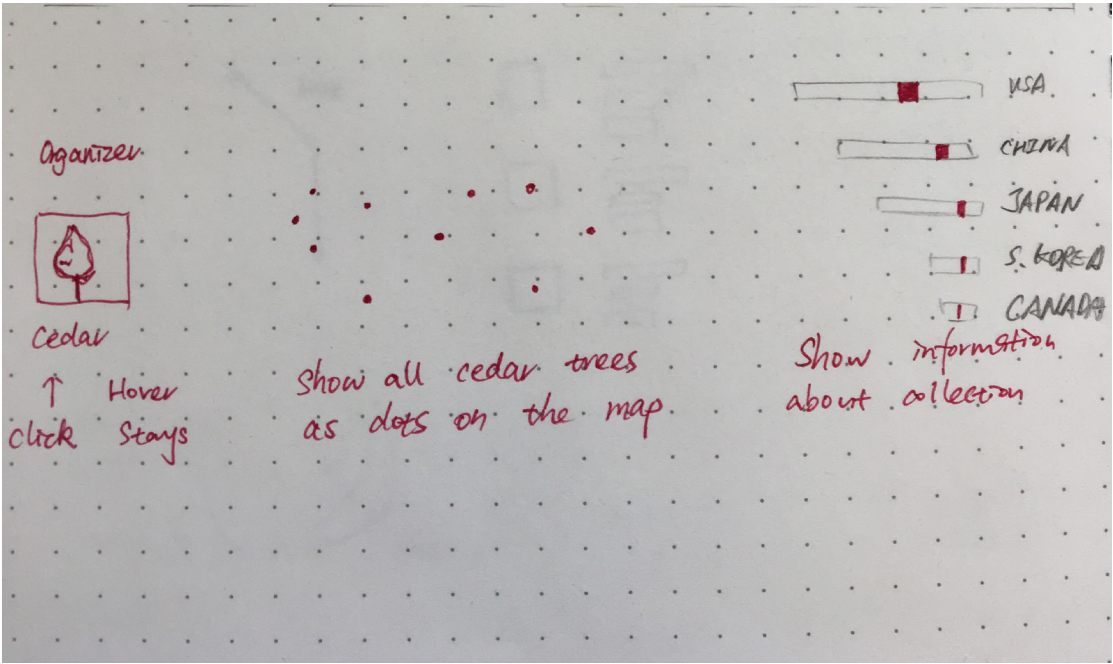 Oganizer
Cedar
↑ Hover
click stays
Show all cedar trees
as dots on the map
USA
CHINA
JAPAN
S. KOREA
CANADA
Show information
about collection